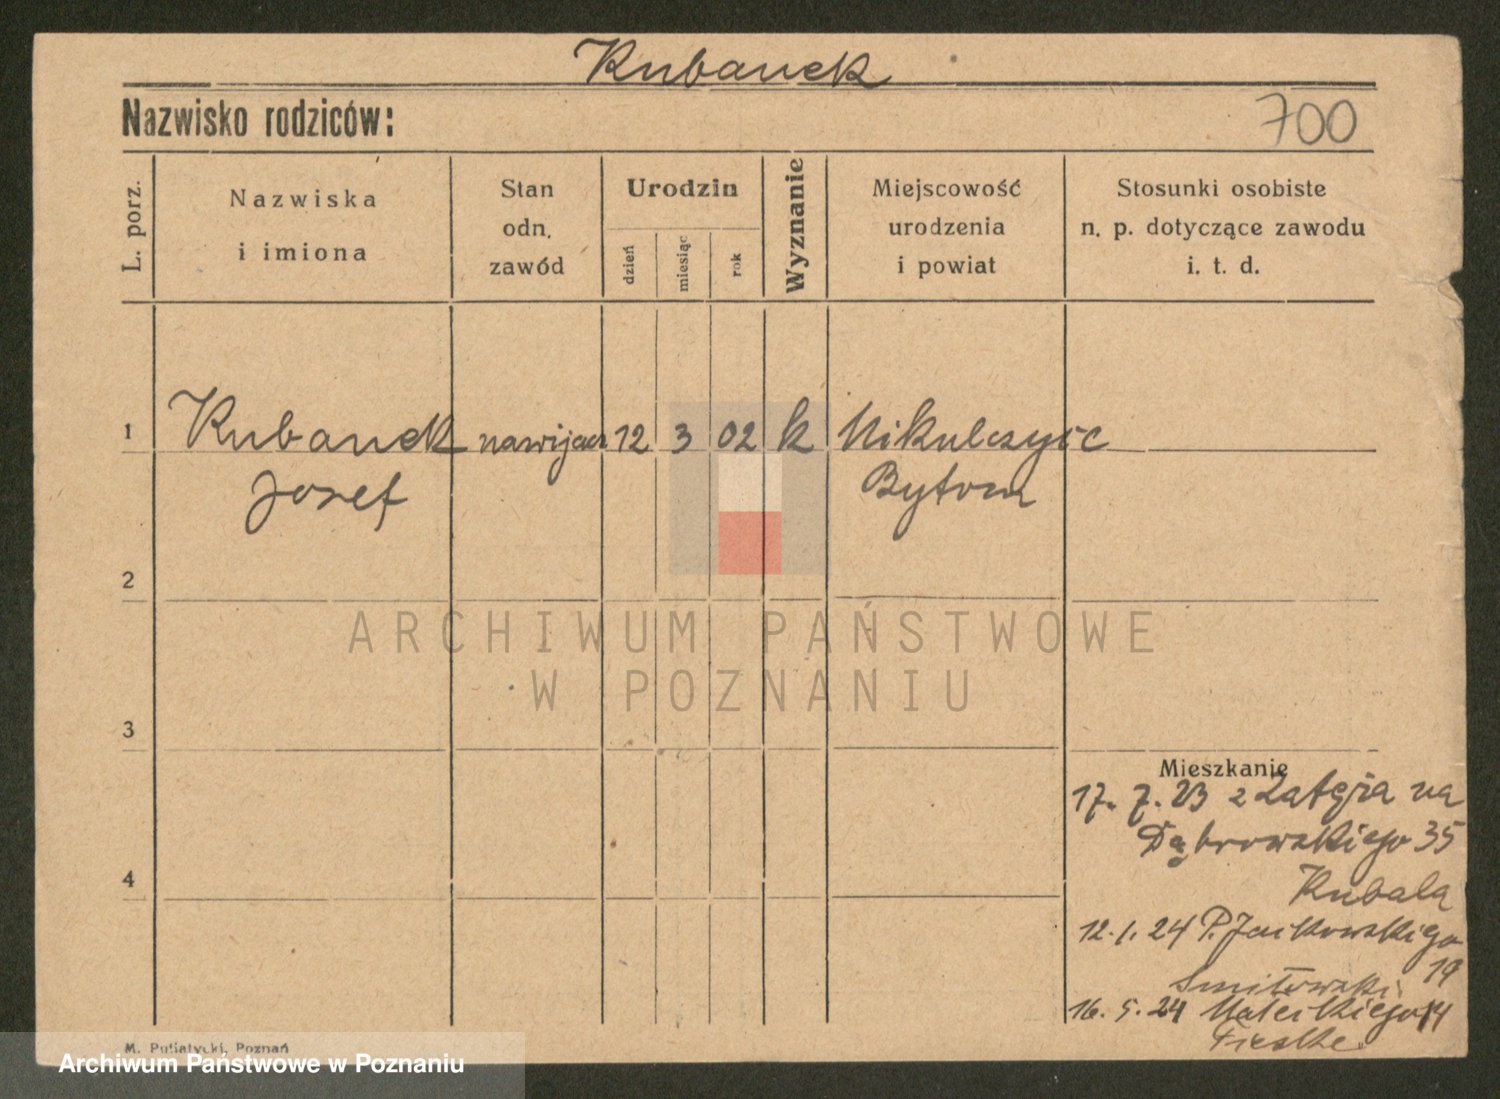 Kubanek
Nazwisko rodziców:
700
L. porz.
Nazwiska
i imiona
Stan
odn.
zawód
Urodzin
dzień
miesiąc
rok
Wyznanie
Miejscowość
urodzenia
i powiat
Stosunki osobiste
n. p. dotyczące zawodu
i. t. d.
1
Kubanek nawijacz 12 3 02 k Mikulczyc
Josef Bytom
2
ARCHIWUM PAŃSTWOWE
W POZNANIU
3
4
Mieszkanie
17. 7. 23 z na
Dąbrowskiego 35
Kubala
12. 1. 24 P. Jackowskiego
19
Smitowski
16. 5. 24 Matejkiego 14
M. Putiatycki, Poznań
Archiwum Państwowe w Poznaniu